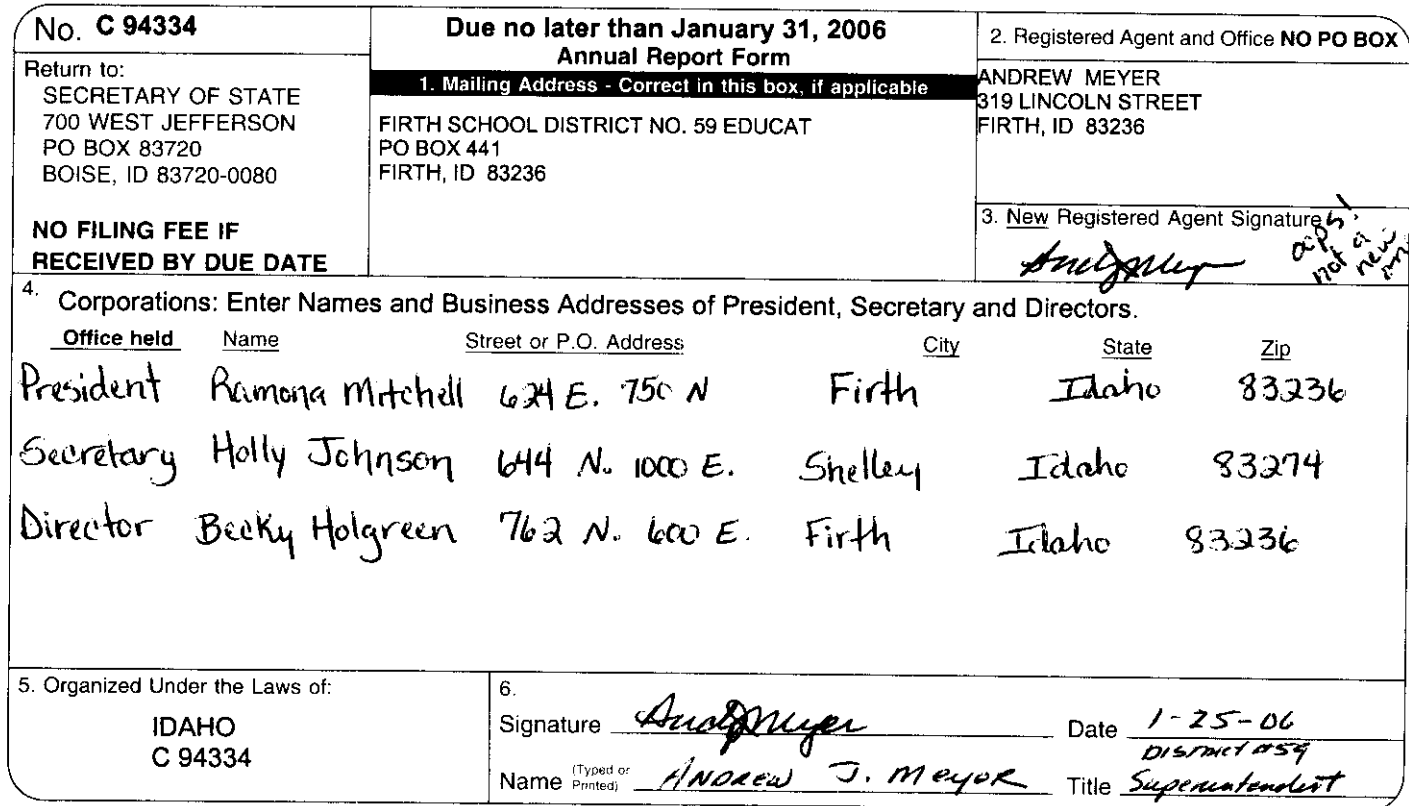 No. C 94334
Return to:
SECRETARY OF STATE
700 WEST JEFFERSON
PO BOX 83720
BOISE, ID 83720-0080
NO FILING FEE IF
RECEIVED BY DUE DATE
Due no later than January 31, 2006
Annual Report Form
1. Mailing Address - Correct in this box, if applicable
FIRTH SCHOOL DISTRICT NO. 59 EDUCAT
PO BOX 441
FIRTH, ID 83236
2. Registered Agent and Office NO PO BOX
ANDREW MEYER
319 LINCOLN STREET
FIRTH, ID 83236
3. New Registered Agent Signature
Andy Meyer
oops!
not a
new
one
4. Corporations: Enter Names and Business Addresses of President, Secretary and Directors.
Office held Name Street or P.O. Address City State Zip
President Ramona Mitchell 624 E. 750 N Firth Idaho 83236
Secretary Holly Johnson 644 N. 1000 E. Shelley Idaho 83274
Director Becky Holgreen 762 N. 600 E. Firth Idaho 83236
5. Organized Under the Laws of:
IDAHO
C 94334
6.
Signature Andy Meyer Date 1-25-06
Name (Typed or Printed) ANDREW J. MEYER Title DISTRICT #59 Superintendent